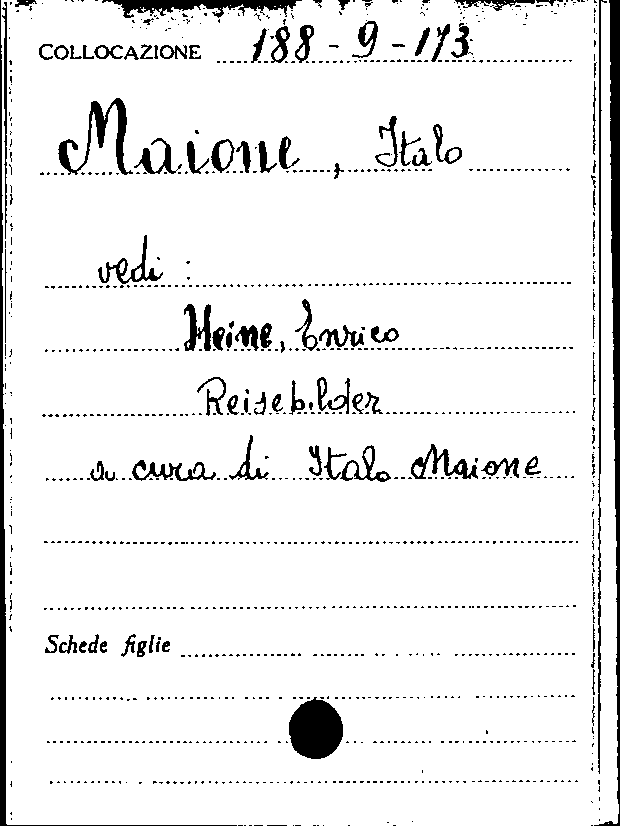 COLLOCAZIONE 188-9-173
Maione, Italo
vedi :
Heine, Enrico
Reisebilder
a cura di Italo Maione
Schede figlie